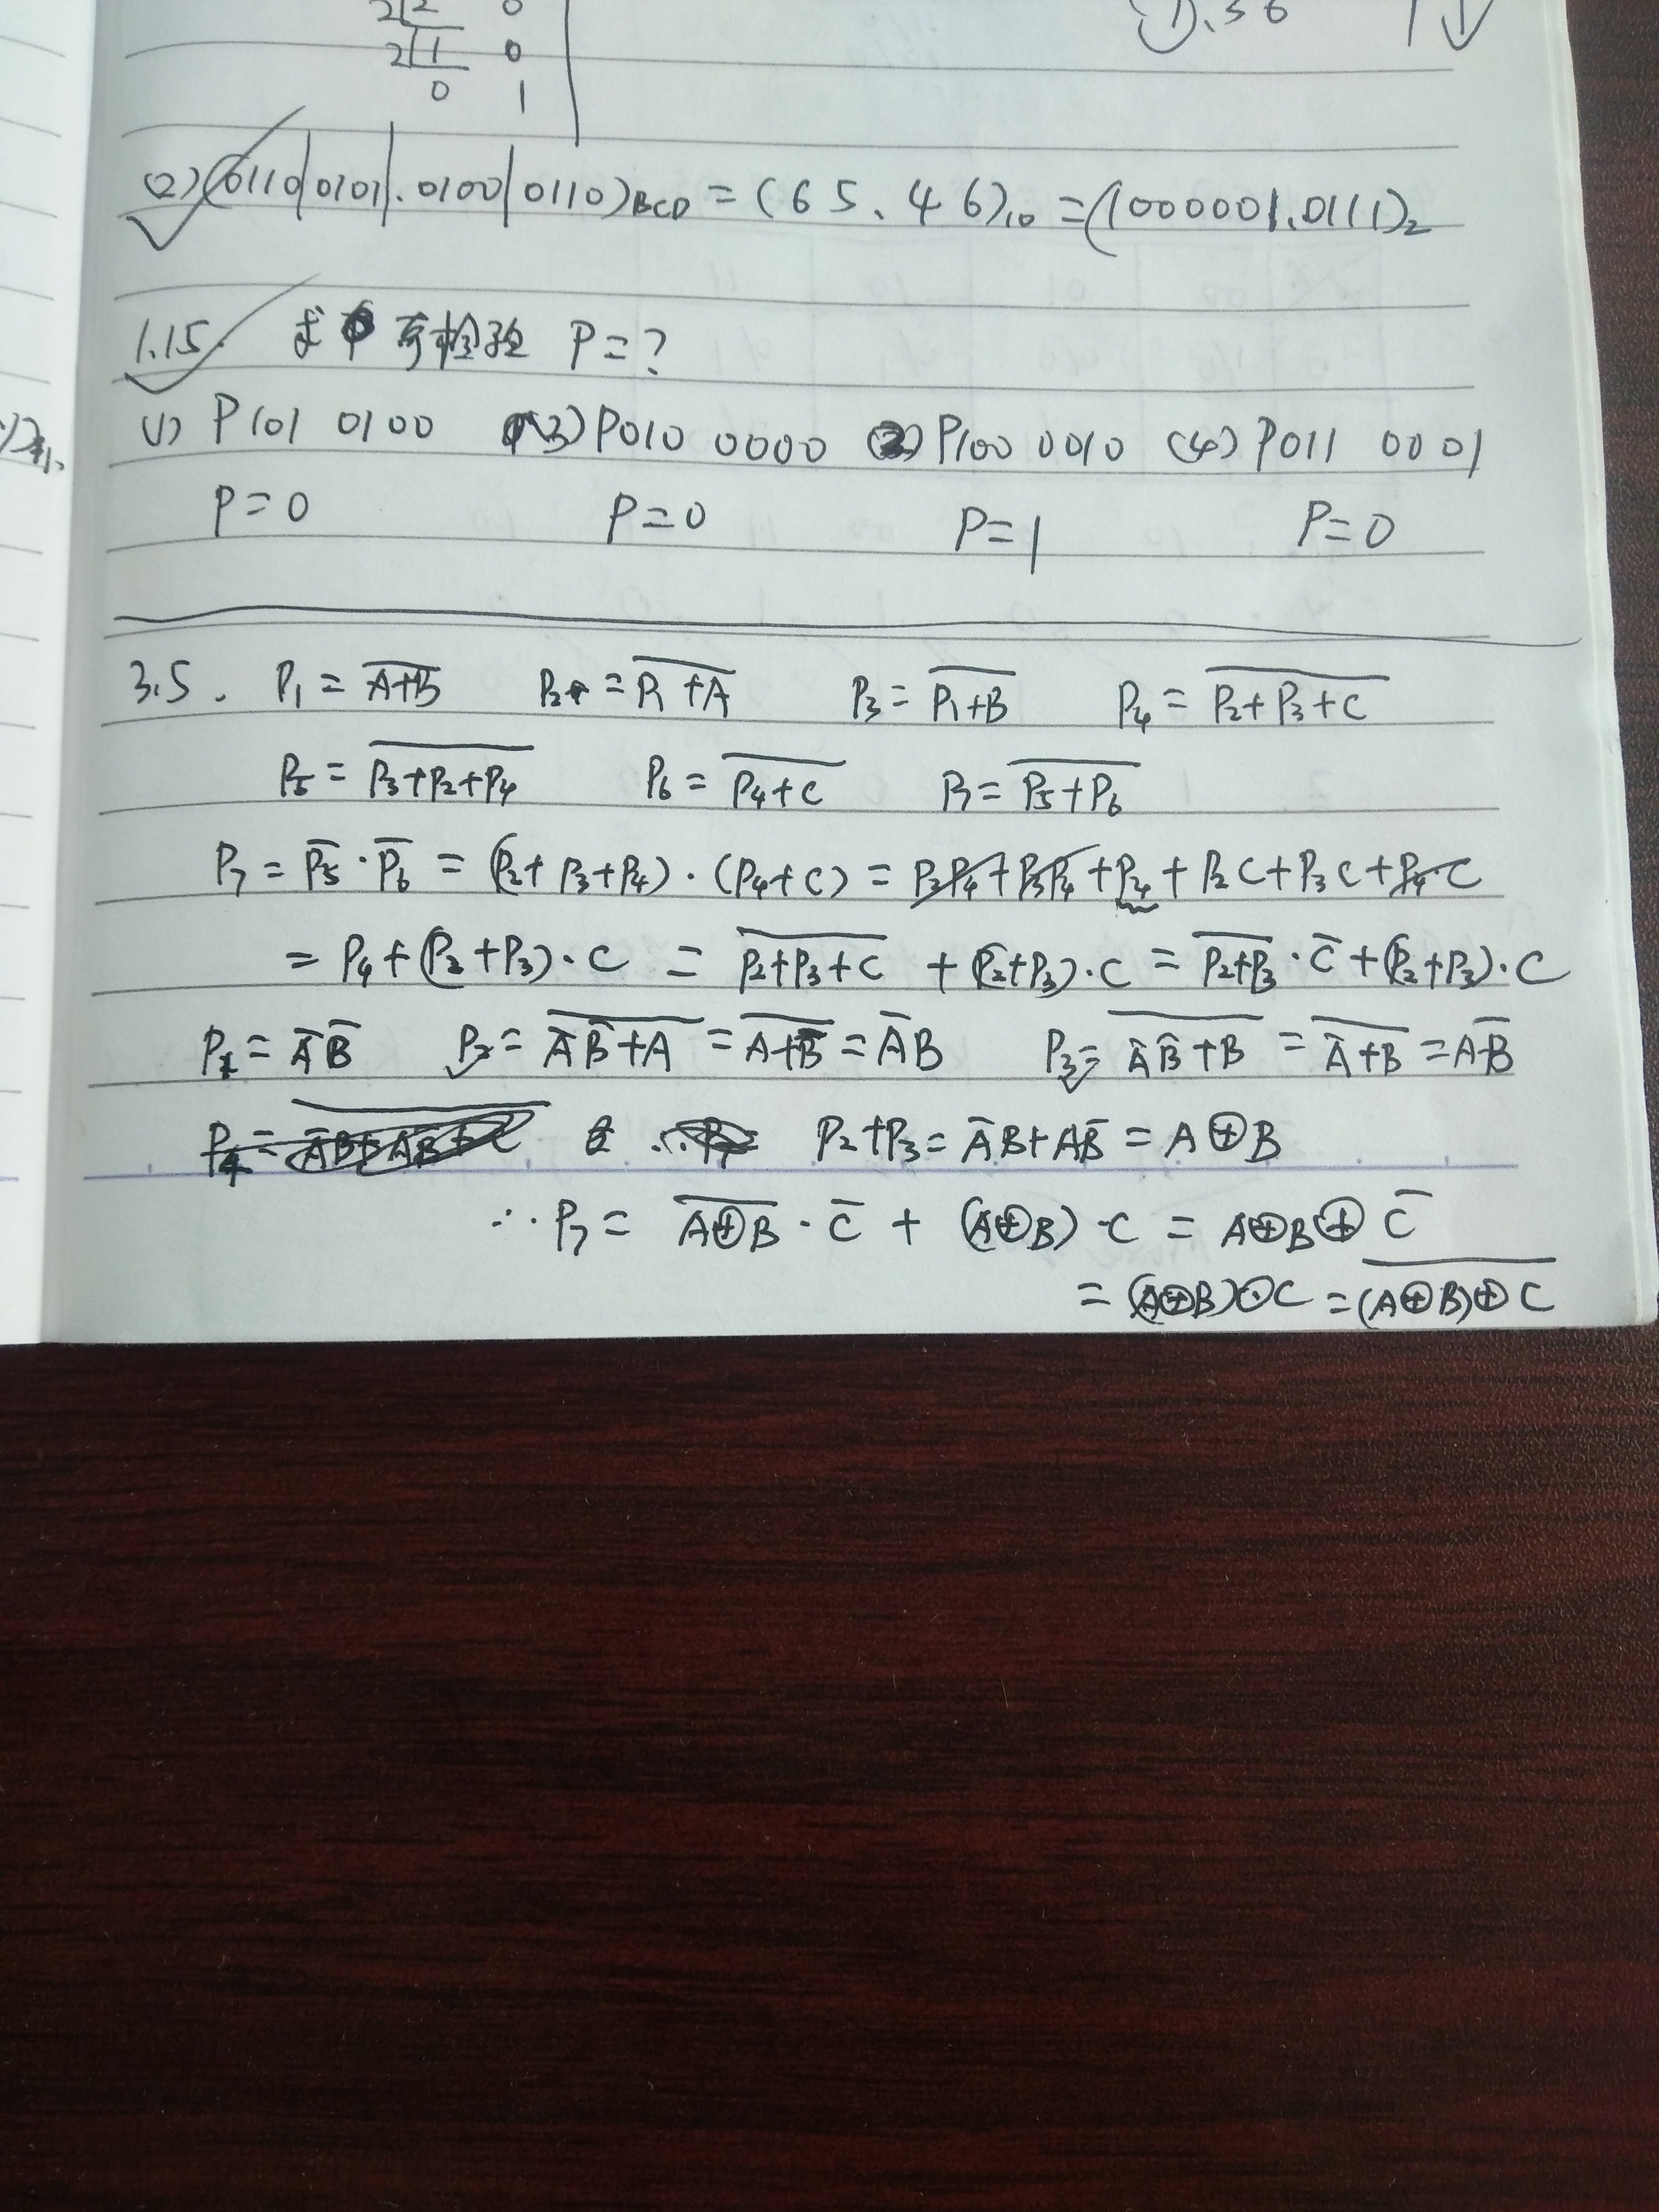 2 2 0
2 1 0
0 1
1.36
(2) (0110 | 0101 | . 0100 | 0110)BCD = (65.46)₁₀ = (1000001.0111)₂
1.15. 求 奇检验 P=?
(1) P101 0100 (3) P010 0000 (2) P100 0010 (4) P011 0001
P=0 P=0 P=1 P=0
3.5. P₁ = \overline{A+B} P₂ = \overline{P₁+A} P₃ = \overline{P₁+B} P₄ = \overline{P₂+P₃+C}
P₅ = \overline{P₃+P₂+P₄} P₆ = \overline{P₄+C} P₇ = \overline{P₅+P₆}
P₇ = \overline{P₅}·\overline{P₆} = (P₂+P₃+P₄)·(P₄+C) = P₂P₄+P₃P₄+P₄+P₂C+P₃C+P₄C
= P₄+(P₂+P₃)·C = \overline{P₂+P₃+C} + (P₂+P₃)·C = \overline{P₂+P₃}·\overline{C}+(P₂+P₃)·C
P₁ = \overline{A}\,\overline{B} P₂ = \overline{\overline{A}\,\overline{B}+A} = \overline{A+\overline{B}} = \overline{A}B P₃ = \overline{\overline{A}\,\overline{B}+B} = \overline{\overline{A}+B} = A\overline{B}
P₂+P₃ = \overline{A}B+A\overline{B} = A⊕B
∴ P₇ = \overline{A⊕B}·\overline{C} + (A⊕B)·C = A⊕B⊕\overline{C}
= (A⊕B)⊙C = \overline{(A⊕B)⊕C}